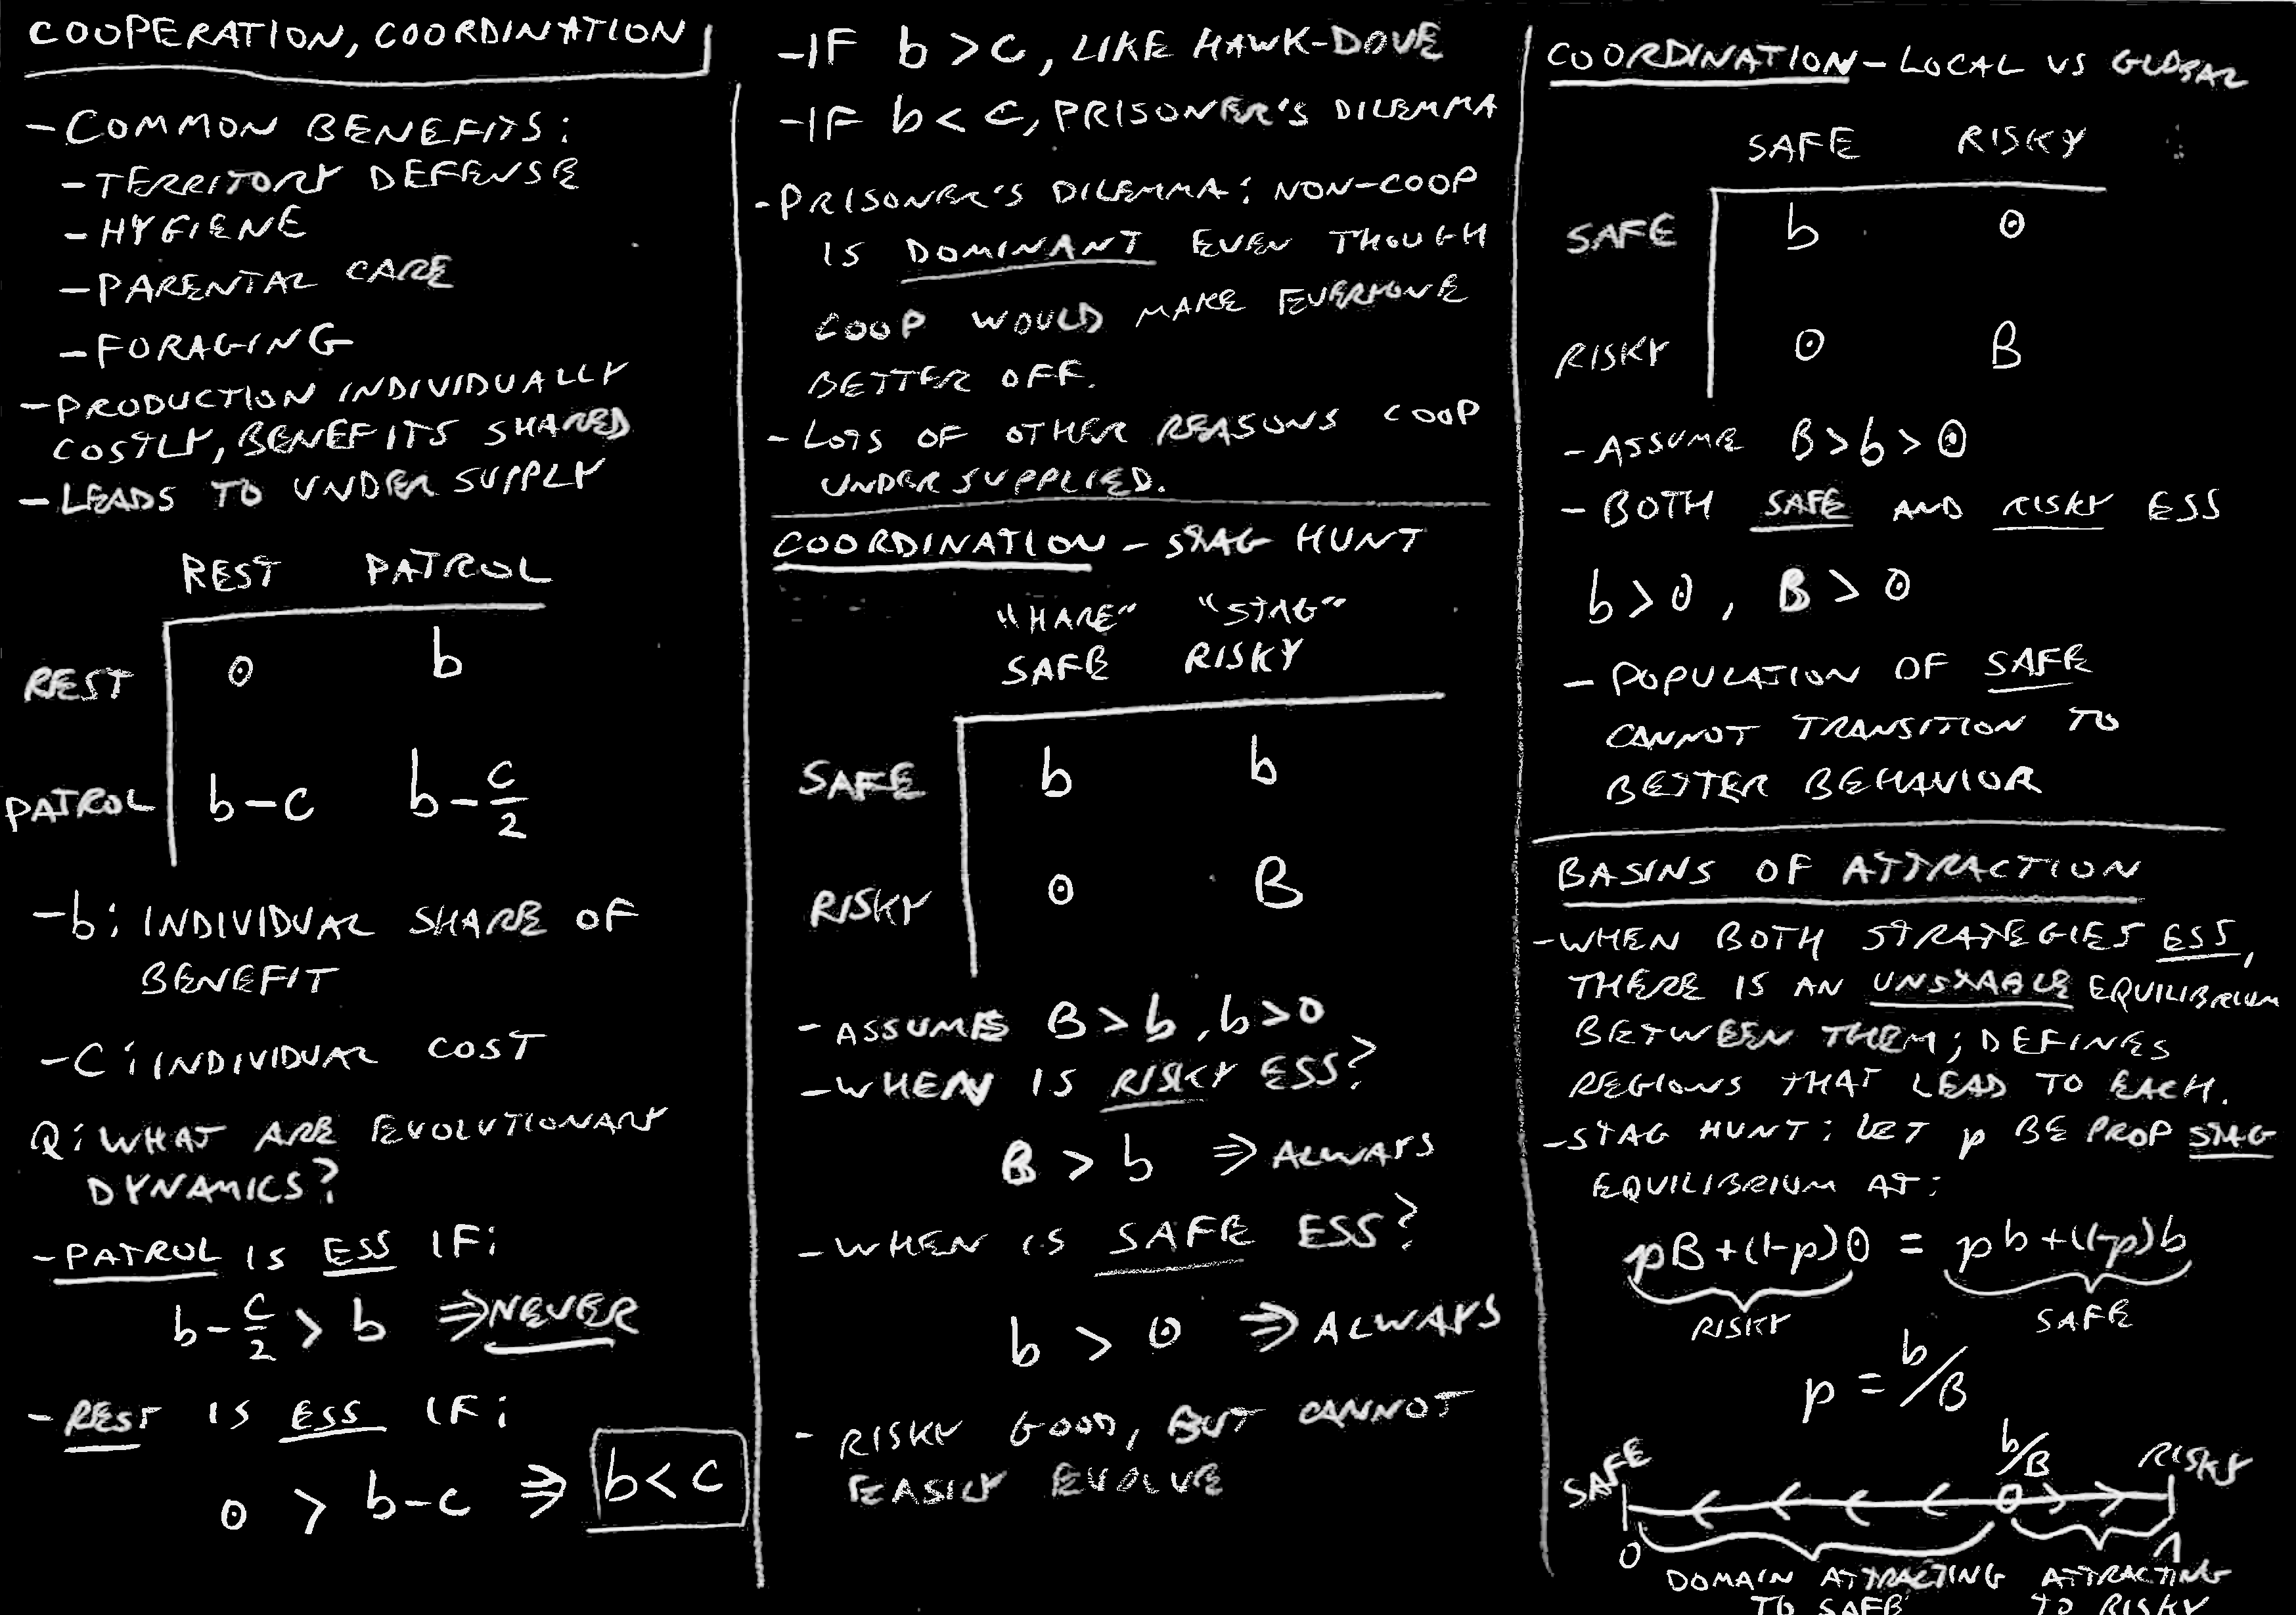 COOPERATION, COORDINATION
-COMMON BENEFITS:
-TERRITORY DEFENSE
-HYGIENE
-PARENTAL CARE
-FORAGING
-PRODUCTION INDIVIDUALLY
COSTLY, BENEFITS SHARED
-LEADS TO UNDER SUPPLY
REST PATROL
REST 0 b
PATROL b-c b-c/2
-b: INDIVIDUAL SHARE OF
BENEFIT
-C: INDIVIDUAL COST
Q: WHAT ARE EVOLUTIONARY
DYNAMICS?
-PATROL IS ESS IF:
b-c/2 > b ⇒NEVER
-REST IS ESS IF:
0 > b-c ⇒ b<c
-IF b>c, LIKE HAWK-DOVE
-IF b<c, PRISONER'S DILEMMA
-PRISONER'S DILEMMA: NON-COOP
IS DOMINANT EVEN THOUGH
COOP WOULD MAKE EVERYONE
BETTER OFF.
-LOTS OF OTHER REASONS COOP
UNDERSUPPLIED.
COORDINATION - STAG HUNT
"HARE" "STAG"
SAFE RISKY
SAFE b b
RISKY 0 B
-ASSUME B>b, b>0
-WHEN IS RISKY ESS?
B > b ⇒ ALWAYS
-WHEN IS SAFE ESS?
b > 0 ⇒ ALWAYS
- RISKY GOOD, BUT CANNOT
EASILY EVOLVE
COORDINATION - LOCAL VS GLOBAL
SAFE RISKY
SAFE b 0
RISKY 0 B
-ASSUME B>b>0
-BOTH SAFE AND RISKY ESS
b>0, B>0
-POPULATION OF SAFE
CANNOT TRANSITION TO
BETTER BEHAVIOR
BASINS OF ATTRACTION
-WHEN BOTH STRATEGIES ESS,
THERE IS AN UNSTABLE EQUILIBRIUM
BETWEEN THEM; DEFINES
REGIONS THAT LEAD TO EACH.
-STAG HUNT: LET p BE PROP STAG
EQUILIBRIUM AT:
pB+(1-p)0 = pb+(1-p)b
RISKY SAFE
p = b/B
SAFE b/B RISKY
0 1
DOMAIN ATTRACTING ATTRACTING
TO SAFE TO RISKY